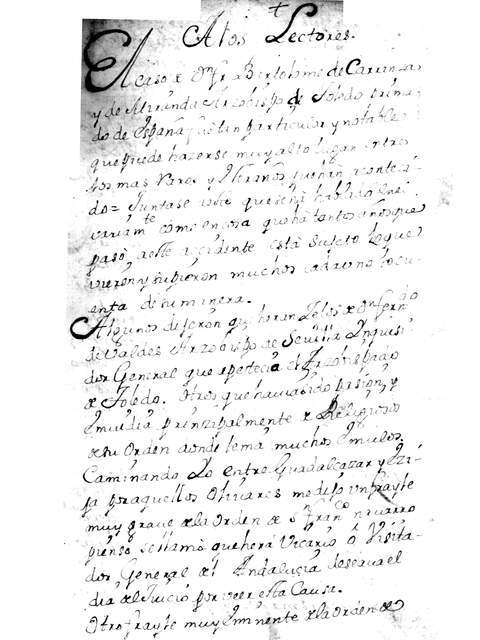 A los Lectores.
El caso de Don fr Bertolome de Carranza
y de Miranda Arzobispo de Toledo Prima
do de España fue tan particular y notable
que puede hazerse muy alto lugar entre
los mas raros y que han aconteci
do = Juntase
como en cosa que ha tantos años que
paso, a este accidente está sujeto lo que
vieron y supieron muchos cada uno lo cu-
enta de su manera.
Algunos dijeron que fueron zelos de Don fern do
de Valdes Arzobispo de Sevilla Inquisi
dor General que apetecia el Arzobispado
de Toledo. Otros que havia sido pasion, y
embidia prinzipalmente de Religiosos
de su Orden a donde tenia muchos emulos.
Caminando Yo entre Guadalcazar y Ezi-
ja por aquellos Olivares me dijo un frayle
muy grave de la Orden de Sn Franco navarro
pienso se llamó que hera Vicario ô Visita-
dor General de el Andaluzia deseava el
dia de el Juicio por veer esta Causa.
Otro frayle muy eminente de la Orden de